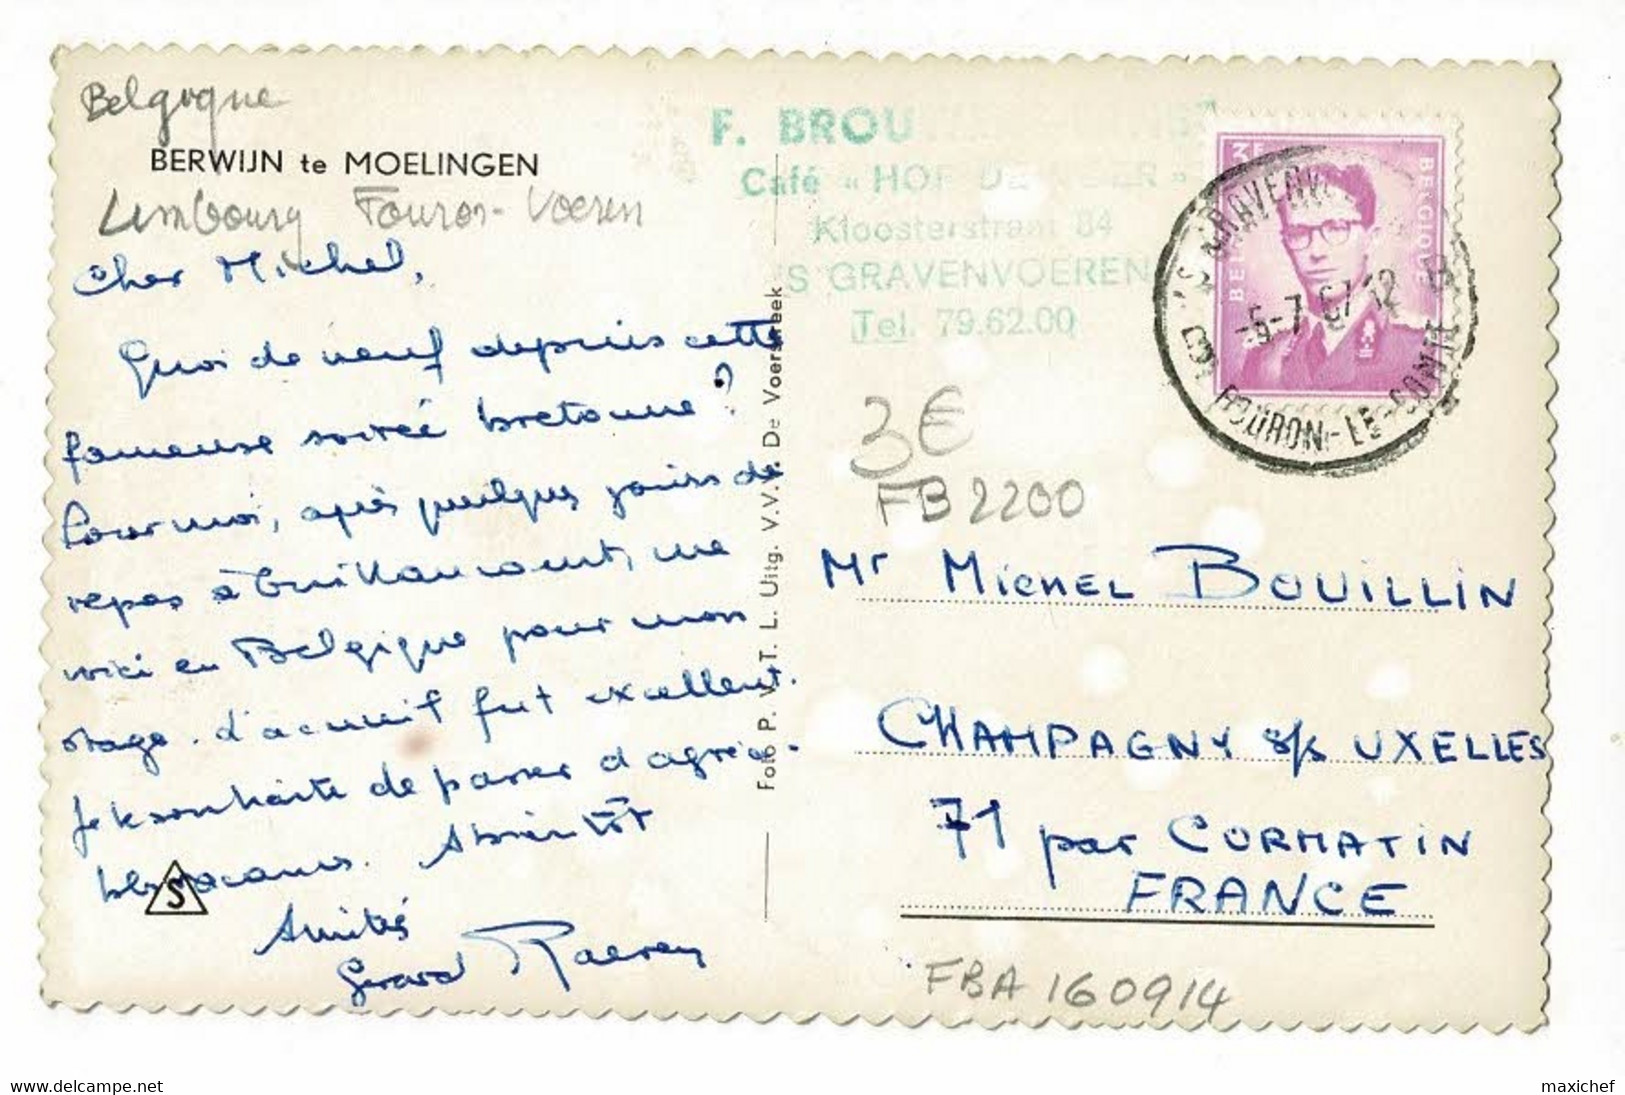 Belgique
BERWIJN te MOELINGEN
Limbourg Fouron-Voeren
Cher Michel,
Quoi de neuf depuis cette
fameuse soirée bretonne ?
Pour moi, après quelques jours de
repos à Guillaucourt, me
voici en Belgique pour mon
stage. L'accueil fut excellent.
Je te souhaite de passer d'agréa-
bles vacances. A bientôt
Amitiés
Gérard
S
Foto P. V. T. L. Uitg. V.V.V. De Voerstreek
F. BROU
Café « HOF DE »
Kloosterstraat 84
'S GRAVENVOEREN
Tel. 79.62.00
BELGIQUE
'S GRAVENV
-5-7 67 12
FOURON-LE-COMTE
3€
FB 2200
Mr MICHEL BOUILLIN
CHAMPAGNY s/s UXELLES
71 par CORMATIN
FRANCE
FBA 160914
delcampe.net
maxichef